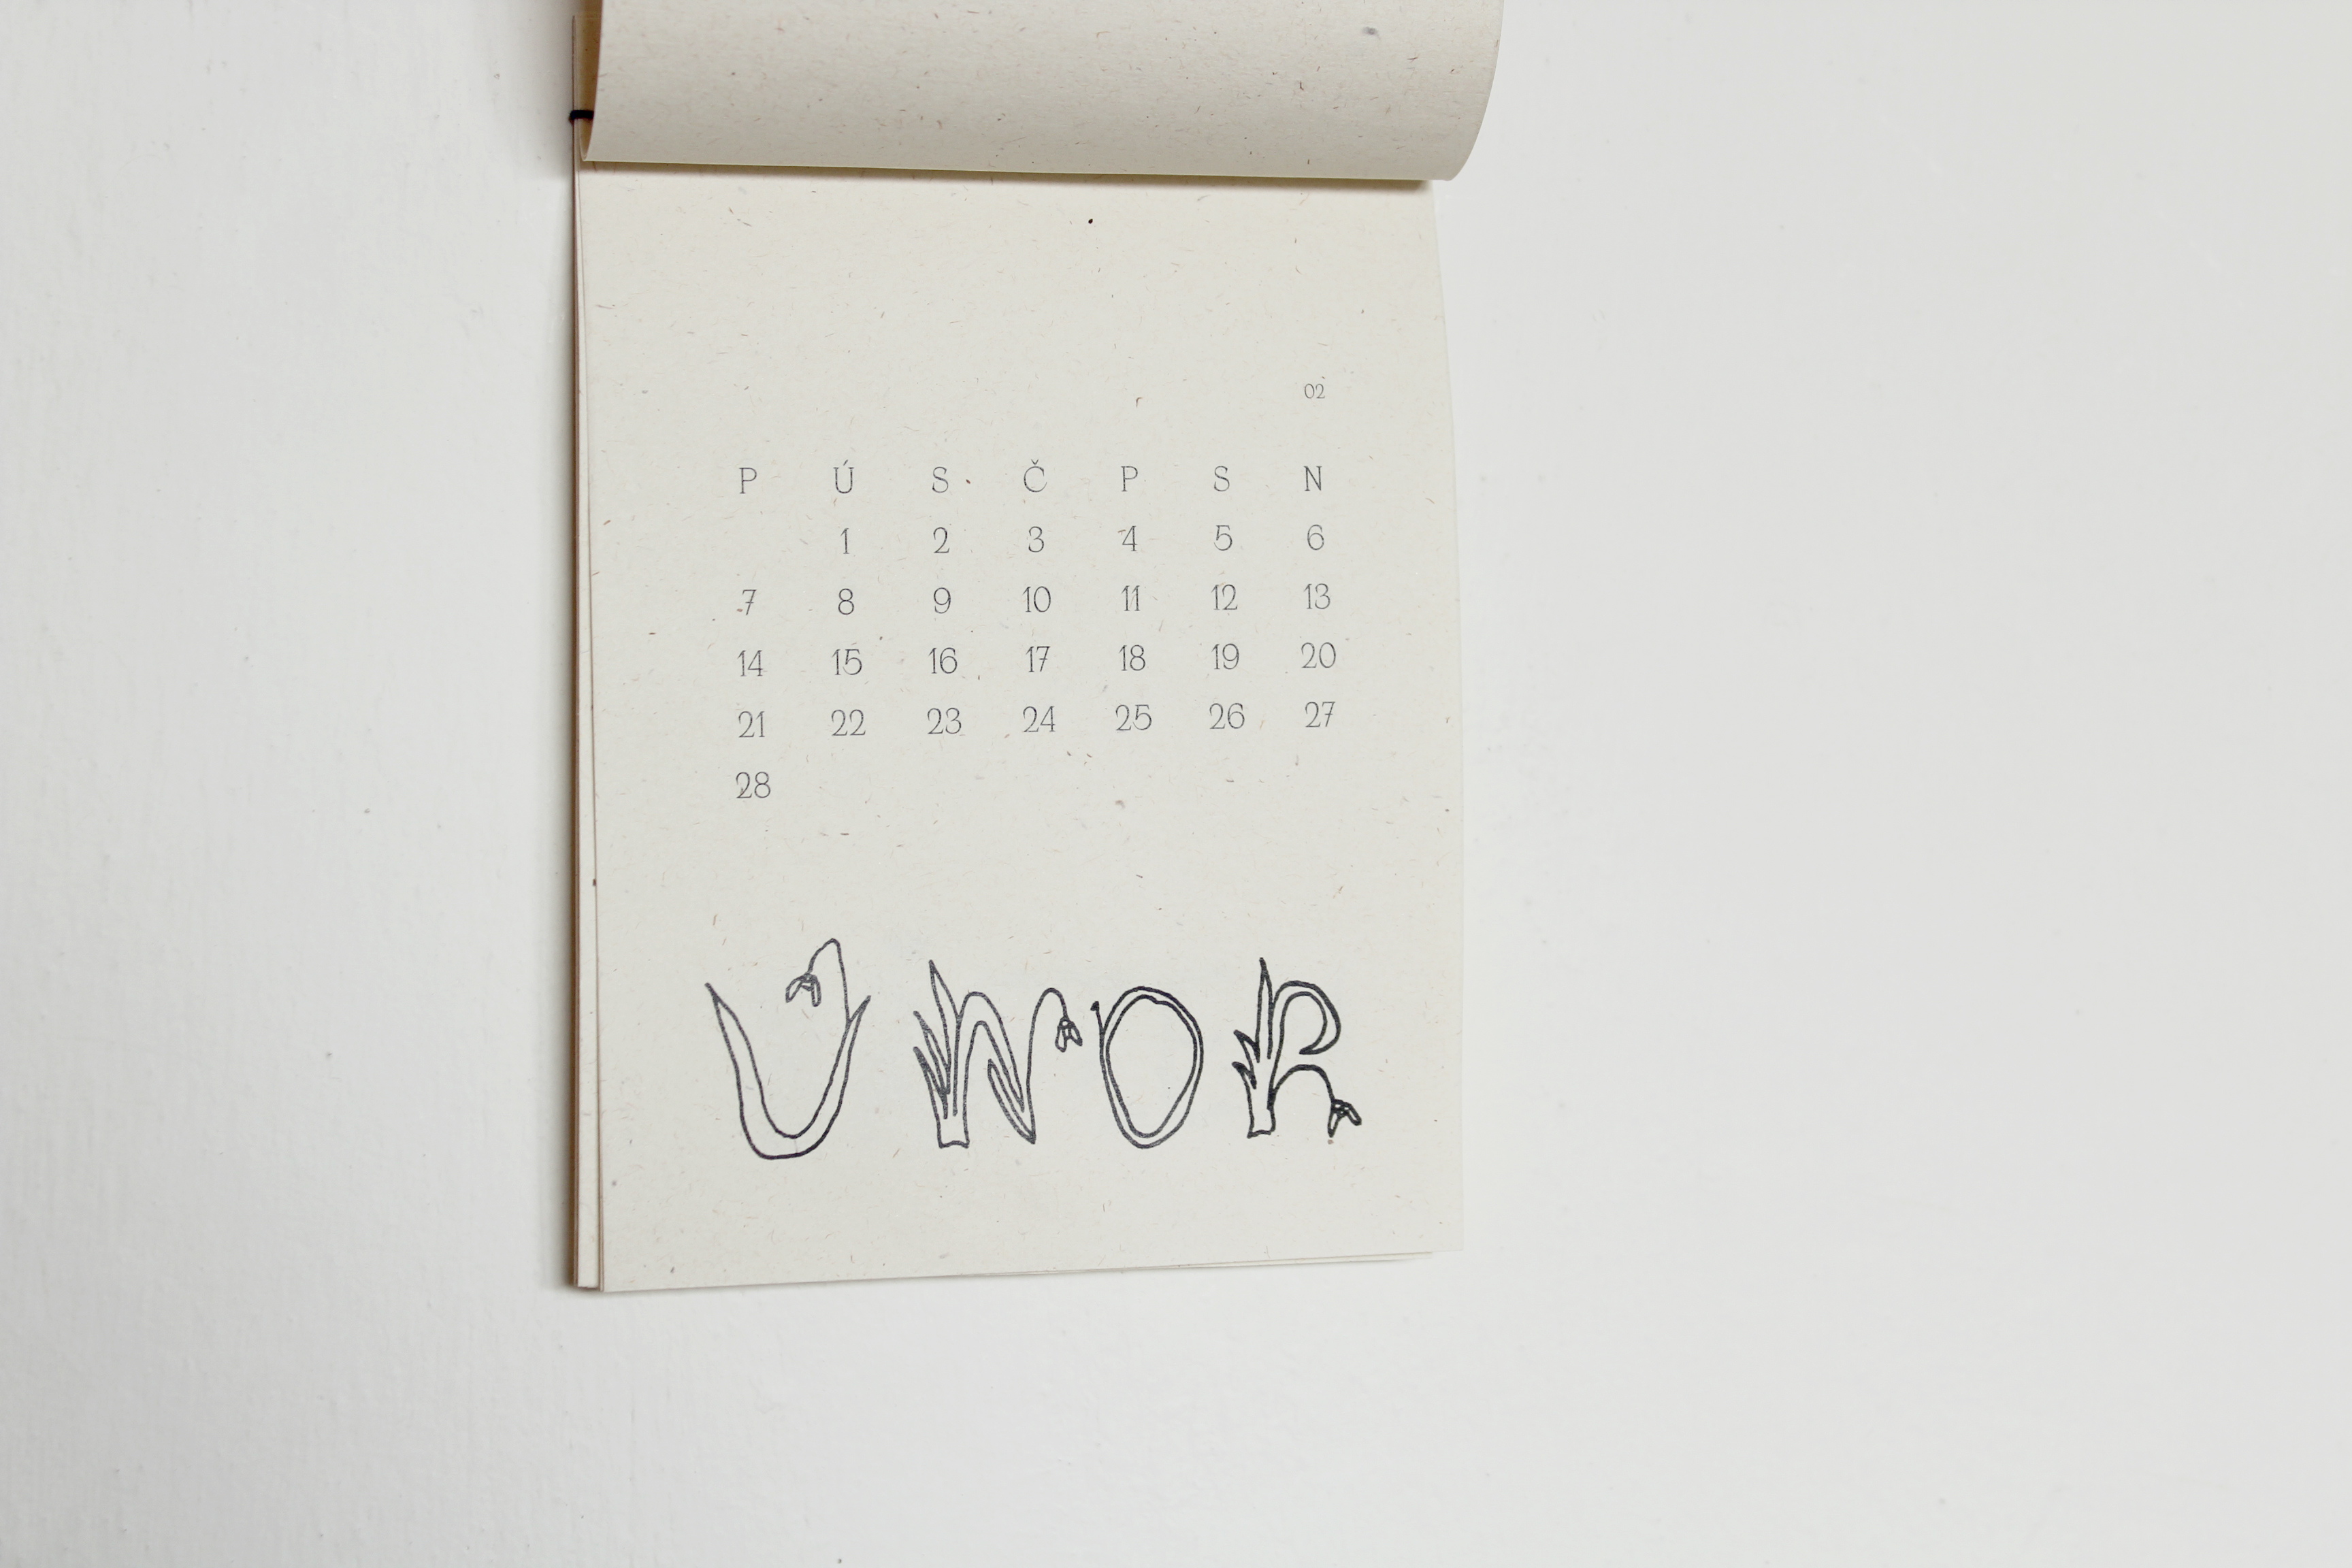 02
P Ú S Č P S N
1 2 3 4 5 6
7 8 9 10 11 12 13
14 15 16 17 18 19 20
21 22 23 24 25 26 27
28
ÚNOR